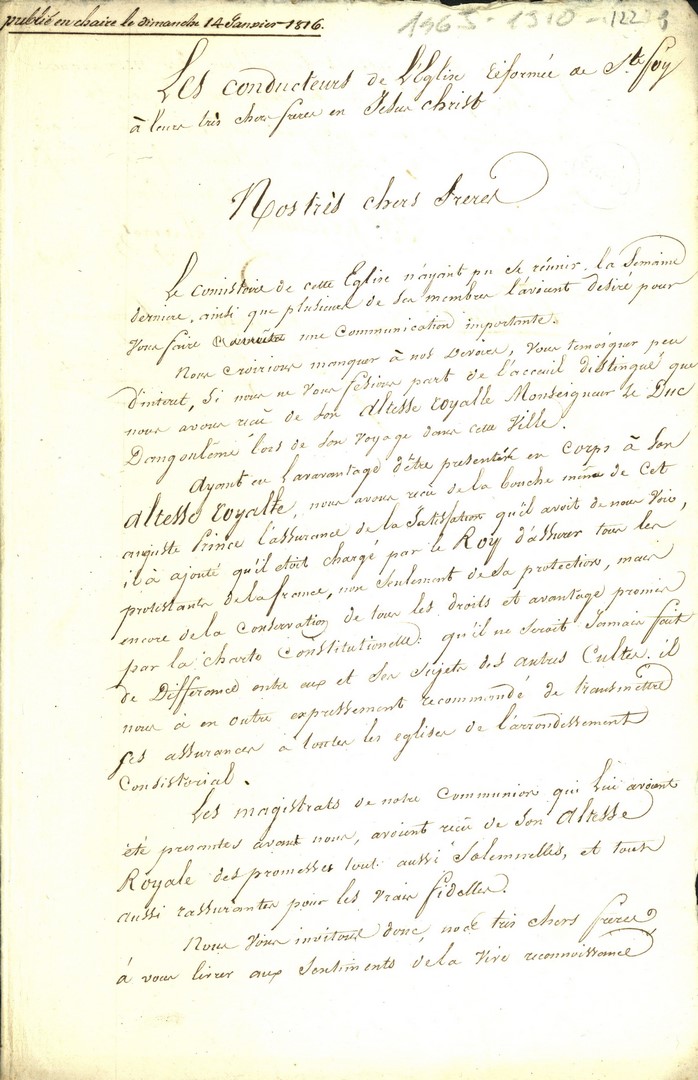 publié en chaire le dimanche 14 Janvier 1816.
1465-1310-1223
Les conducteurs de L'Eglise Réformée de Ste foy
à leurs très chers freres en Jesus Christ
Nos très chers freres
Le consistoire de cette Eglise n'ayant pu se réunir la Semaine
derniere, ainsi que plusieurs de ses membres l'avoient désiré pour
Vous faire une Communication importante.
Nous croirions manquer à nos Devoirs, Vous temoigner peu
d'interet, Si nous ne Vous fesions part de l'acceuil distingué que
nous avons reçu de Son altesse royalle Monseigneur Le Duc
Dangoulême lors de Son Voyage dans cette Ville.
Ayant eu Laravantage d'être presentés en corps à Son
altesse royalle, nous avons reçu de la bouche même de cet
auguste Prince l'assurance de la Satisfation qu'il avoit de nous Voir,
il à ajouté qu'il étoit chargé par le Roy d'assurer tous les
protestants de la france, non Seulement de Sa protection, mais
encore de la Conservation de tous les droits et avantage promis
par la charte Constitutionelle: qu'il ne Seroit Jamais fait
de Différance entre eux et Ses Sujets des autres Cultes. il
nous à en outre expressement recommandé de transmettre
ses assurances à toutes les eglises de L'arrondissement
Consistorial.
Les magistrats de notre Communion qui Lui avoient
été presentés avant nous, avoient reçu de Son Altesse
Royale des promesses tout aussi Solemnelles, et tout
aussi rassurantes pour les Vrais fidelles.
Nous Vous invitons donc, nos très chers freres,
à vous livrer aux Sentiments de la Vive reconnoissance